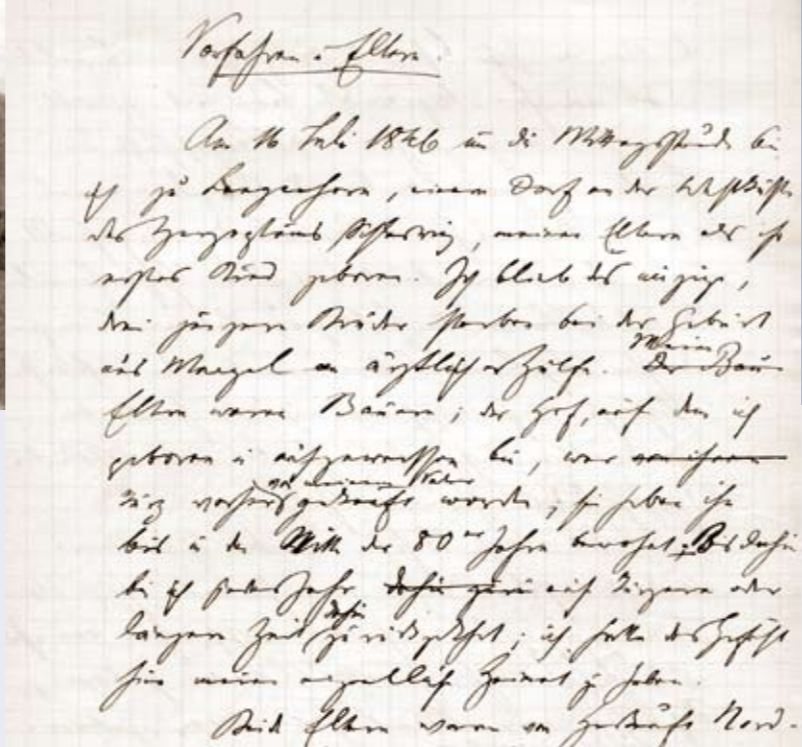 Vorfahren u. Eltern.
Am 16 Juli 1846 um die Mittagsstunde bin
ich zu Langenhorn, einem Dorf an der Westküste
des Herzogtums Schleswig, meinen Eltern als ihr
erstes Kind geboren. Ich blieb das einzige,
drei jüngere Brüder starben bei der Geburt
aus Mangel an ärztlicher Hilfe. Der Bau Meine
Eltern waren Bauern; der Hof, auf dem ich
geboren u. aufgewachsen bin, war von ihnen
kurz vorher von meinem Vater gekauft worden; sie haben ihn
bis in die Mitte der 80er Jahre bewohnt; Bis dahin
bin ich jedes Jahr dahin auf kürzere oder
längere Zeit dahin zurückgekehrt; ich hatte das Gefühl
hier meine eigentliche Heimat zu haben.
Beide Eltern waren von Herkunft Nord-